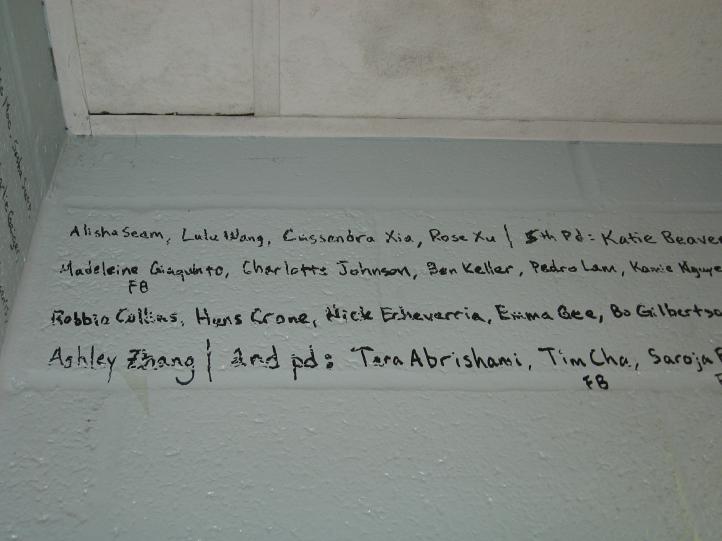 Alisha Seam, Lulu Wang, Cassandra Xia, Rose Xu | 5th Pd: Katie Beave
Madeleine Giaquinto, Charlotte Johnson, Ben Keller, Pedro Lam, Kamie Nguye
FB
Robbie Collins, Hans Crone, Nick Echeverria, Emma Gee, Bo Gilbertso
Ashley Zhang | 2nd pd: Tara Abrishami, Tim Cha, Saroja
FB